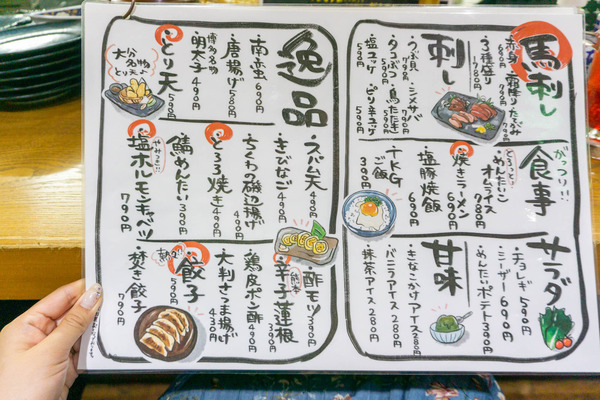 馬刺し
・赤身 690円
・霜降り・たてがみ 790円
・3種盛り 1780円
刺し
・つぶ貝 790円
・シメサバ 790円
・タコぶつ 590円
・鳥たたき 590円
・塩ユッケ 590円
・ピリ辛ユッケ 590円
がっつり!!
食事
とろっと!!
・めんたいこオムライス 980円
・焼きラーメン 690円
・塩豚焼飯 690円
・TKG
ご飯 390円
サラダ
・チョレギ 590円
・シーザー 690円
・めんたいポテト 390円
甘味
・きなこかけアイス 280円
・バニラアイス 280円
・抹茶アイス 280円
逸品
・南蛮 690円
・唐揚げ 580円
博多名物
・明太子 490円
大分名物
とり天よ
・とり天 590円
・スパム天 490円
・きびなご 490円
・ちくわの磯辺揚げ 490円
・とろろ焼き 490円
・鯖めんたい 390円
やみつき!!
・塩ホルモンキャベツ 790円
・酢モツ 390円
熊本
・辛子蓮根 490円
・鶏皮ポン酢 490円
・大判さつま揚げ 430円
熱々!!
・餃子 590円
・焚き餃子 790円